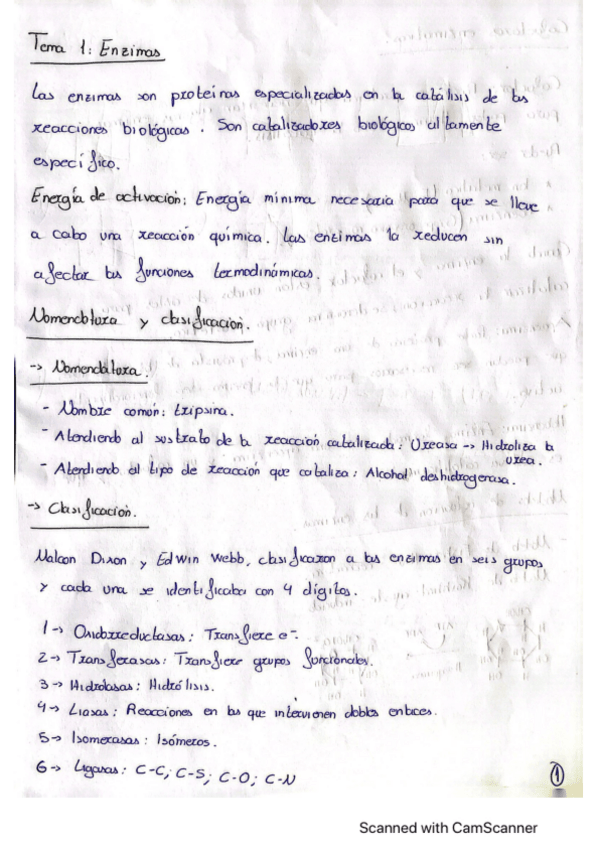 Tema 1: Enzimas
Las enzimas son proteinas especializadas en la catálisis de las
reacciones biológicas. Son catalizadores biológicos altamente
específico.
Energía de activación: Energía mínima necesaria para que se lleve
a cabo una reacción química. Las enzimas la reducen sin
afectar las funciones termodinámicas.
Nomenclatura y clasificación.
-> Nomenclatura.
- Nombre común: tripsina.
- Atendiendo al sustrato de la reacción catalizada: Ureasa -> Hidroliza la
urea.
- Atendiendo al tipo de reacción que cataliza: Alcohol deshidrogenasa.
-> Clasificación.
Malcon Dixon y Edwin Webb, clasificaron a las enzimas en seis grupos
y cada una se identificaba con 4 dígitos.
1 -> Oxidorreductasas: Transfiere e-.
2 -> Transferasas: Transfiere grupos funcionales.
3 -> Hidrolasas: Hidrólisis.
4 -> Liasas: Reacciones en las que intervienen dobles enlaces.
5 -> Isomerasas: Isómeros.
6 -> Ligasas: C-C; C-S; C-O; C-N
1
Scanned with CamScanner